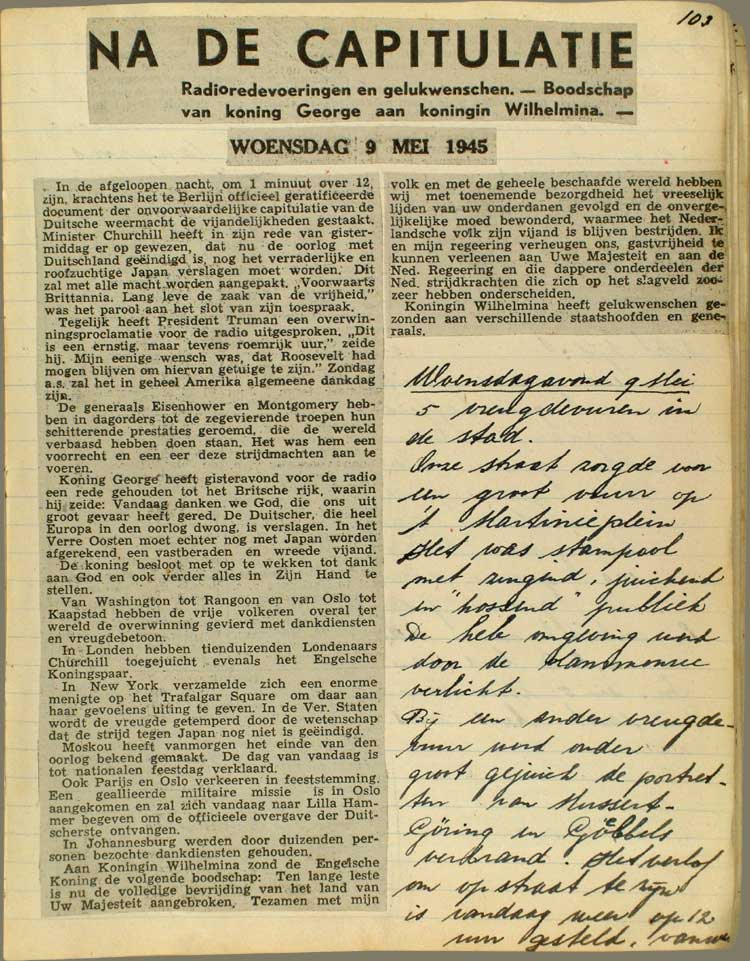 103
NA DE CAPITULATIE
Radioredevoeringen en gelukwenschen. — Boodschap
van koning George aan koningin Wilhelmina. —
WOENSDAG 9 MEI 1945
In de afgeloopen nacht, om 1 minuut over 12,
zijn, krachtens het te Berlijn officieel geratificeerde
document der onvoorwaardelijke capitulatie van de
Duitsche weermacht de vijandelijkheden gestaakt.
Minister Churchill heeft in zijn rede van gister-
middag er op gewezen, dat nu de oorlog met
Duitschland geëindigd is, nog het verraderlijke en
roofzuchtige Japan verslagen moet worden. Dit
zal met alle macht worden aangepakt. „Voorwaarts
Brittannia. Lang leve de zaak van de vrijheid,”
was het parool aan het slot van zijn toespraak.
Tegelijk heeft President Truman een overwin-
ningsproclamatie voor de radio uitgesproken. „Dit
is een ernstig, maar tevens roemrijk uur,” zeide
hij. Mijn eenige wensch was, dat Roosevelt had
mogen blijven om hiervan getuige te zijn.” Zondag
a.s. zal het in geheel Amerika algemeene dankdag
zijn.
De generaals Eisenhower en Montgomery heb-
ben in dagorders tot de zegevierende troepen hun
schitterende prestaties geroemd, die de wereld
verbaasd hebben doen staan. Het was hem een
voorrecht en een eer deze strijdmachten aan te
voeren.
Koning George heeft gisteravond voor de radio
een rede gehouden tot het Britsche rijk, waarin
hij zeide: Vandaag danken we God, die ons uit
groot gevaar heeft gered. De Duitscher, die heel
Europa in den oorlog dwong, is verslagen. In het
Verre Oosten moet echter nog met Japan worden
afgerekend, een vastberaden en wreede vijand.
De koning besloot met op te wekken tot dank
aan God en ook verder alles in Zijn Hand te
stellen.
Van Washington tot Rangoon en van Oslo tot
Kaapstad hebben de vrije volkeren overal ter
wereld de overwinning gevierd met dankdiensten
en vreugdebetoon.
In Londen hebben tienduizenden Londenaars
Churchill toegejuicht evenals het Engelsche
Koningspaar.
In New York verzamelde zich een enorme
menigte op het Trafalgar Square om daar aan
haar gevoelens uiting te geven. In de Ver. Staten
wordt de vreugde getemperd door de wetenschap
dat de strijd tegen Japan nog niet is geëindigd.
Moskou heeft vanmorgen het einde van den
oorlog bekend gemaakt. De dag van vandaag is
tot nationalen feestdag verklaard.
Ook Parijs en Oslo verkeeren in feeststemming.
Een geallieerde militaire missie is in Oslo
aangekomen en zal zich vandaag naar Lilla Ham-
mer begeven om de officieele overgave der Duit-
scherste ontvangen.
In Johannesburg werden door duizenden per-
sonen bezochte dankdiensten gehouden.
Aan Koningin Wilhelmina zond de Engelsche
Koning de volgende boodschap: Ten lange leste
is nu de volledige bevrijding van het land van
Uw Majesteit aangebroken. Tezamen met mijn
volk en met de geheele beschaafde wereld hebben
wij met toenemende bezorgdheid het vreeselijk
lijden van uw onderdanen gevolgd en de onverge-
lijkelijke moed bewonderd, waarmee het Neder-
landsche volk zijn vijand is blijven bestrijden. Ik
en mijn regeering verheugen ons, gastvrijheid te
kunnen verleenen aan Uwe Majesteit en aan de
Ned. Regeering en die dappere onderdeelen der
Ned. strijdkrachten die zich op het slagveld zoo-
zeer hebben onderscheiden.
Koningin Wilhelmina heeft gelukwenschen ge-
zonden aan verschillende staatshoofden en gene-
raals.
Woensdagavond 9 Mei
5 vreugdevuren in
de stad.
Onze straat zorgde voor
een groot vuur op
't Martinieplein
Het was stampvol
met zingend, juichend
en "hossend" publiek
De hele omgeving werd
door de vlammenzee
verlicht.
Bij een ander vreugde-
vuur werd onder
groot gejuich de portret-
ten van Mussert-
Göring en Göbbels
verbrand. Het verlof
om op straat te zijn
is vandaag weer op 12
uur gesteld,